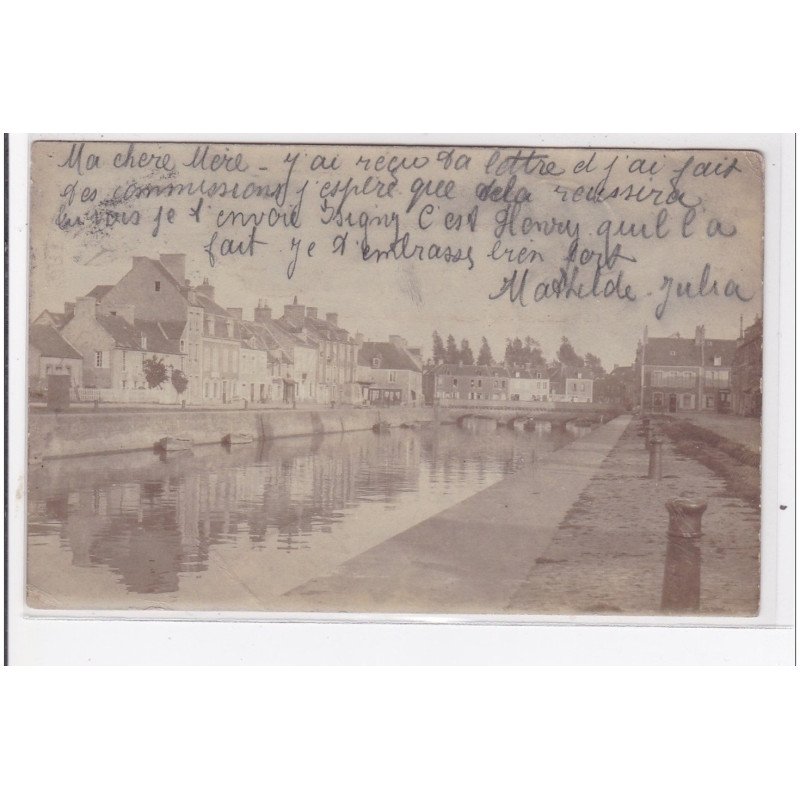 Ma chère Mère - j'ai reçu ta lettre et j'ai fait
des commissions j'espère que cela réussira
je t'envoie Isigny C'est Henry qui l'a
fait je t'embrasse bien fort
Mathilde. Julia